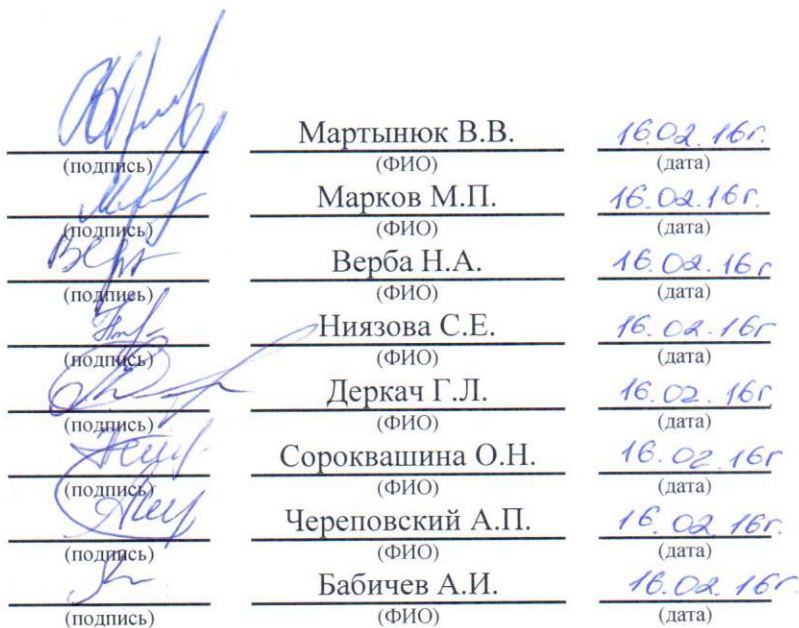 Мартынюк В.В. 16.02.16г.
(подпись) (ФИО) (дата)
Марков М.П. 16.02.16г.
(подпись) (ФИО) (дата)
Верба Н.А. 16.02.16г
(подпись) (ФИО) (дата)
Ниязова С.Е. 16.02.16г
(подпись) (ФИО) (дата)
Деркач Г.Л. 16.02.16г
(подпись) (ФИО) (дата)
Сороквашина О.Н. 16.02.16г
(подпись) (ФИО) (дата)
Череповский А.П. 16.02.16г.
(подпись) (ФИО) (дата)
Бабичев А.И. 16.02.16г.
(подпись) (ФИО) (дата)